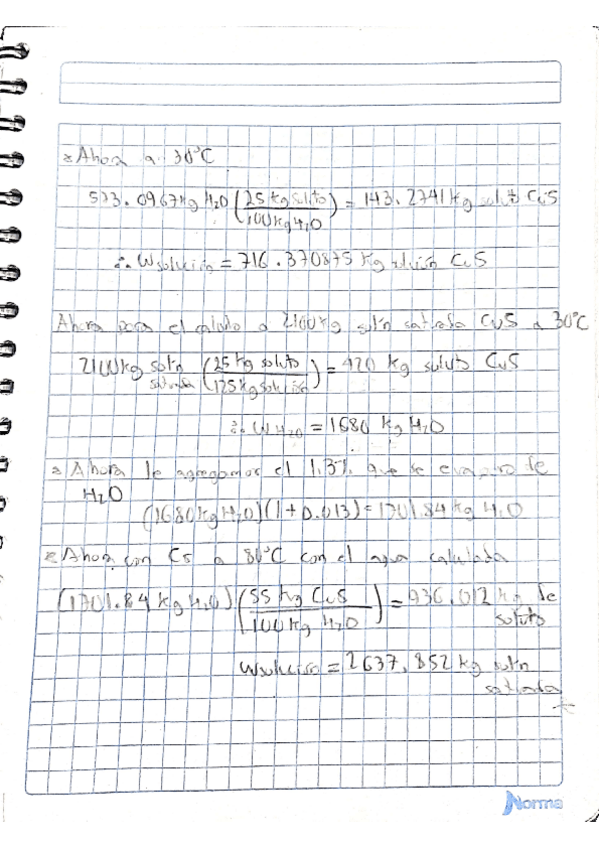 * Ahora a 30°C
573.0967 kg H2O (25 kg soluto / 100 kg H2O) = 143.2741 kg soluto CuS
∴ Wsolución = 716.370875 kg solución CuS
Ahora para el calculo a 2100 kg sol'n satrada CuS a 30°C
2100 kg sol'n satrada (25 kg soluto / 125 kg solución) = 420 kg soluto CuS
∴ WH2O = 1680 kg H2O
* Ahora le agregamos el 1.3% que se evaporo de
H2O
(1680 kg H2O)(1+0.013) = 1701.84 kg H2O
* Ahora con Cs a 80°C con el agua calculada
(1701.84 kg H2O) (55 kg CuS / 100 kg H2O) = 936.012 kg de soluto
Wsolución = 2637.852 kg sol'n
satrada
Norma